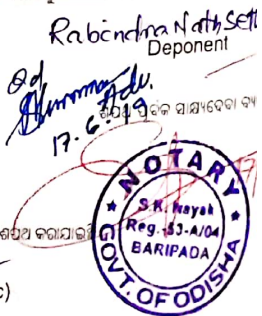 Rabindra Nath Sethi
Deponent
Adv.
17.6.19
ଶପଥ ପୂର୍ବକ ସାକ୍ଷ୍ୟଦେବା
ଶପଥ କରାଯାଇଛି
NOTARY
S.K. Nayak
Reg.-53-A/04
BARIPADA
GOVT. OF ODISHA
c)